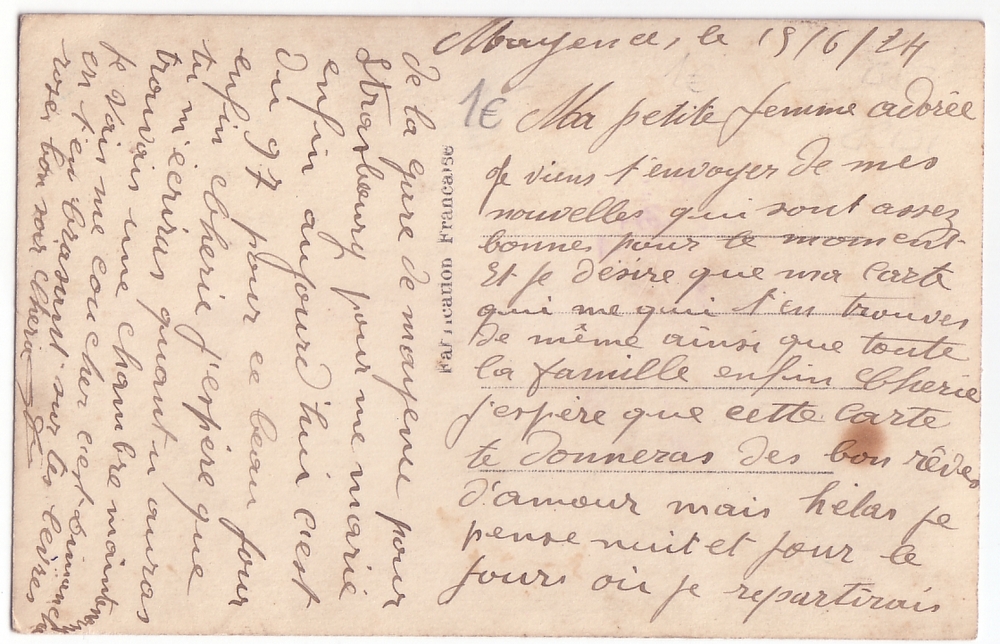 Mayence, le 15/6/24
1€
Ma petite femme adorée
Je viens t'envoyer de mes
nouvelles qui sont assez
bonnes pour le moment
Et je désire que ma Carte
qui me qui t'en trouves
de même ainsi que toute
la famille enfin Cherie
j'espère que cette Carte
te donneras des bon rêves
d'amour mais hélas je
pense nuit et jour le
jours où je repartirais
de la gare de mayene pour
Strasbourg pour me marie
enfin aujourd'hui c'est
du 97 pour ce beau jour
enfin Cherie j'espère que
tu m'écriras quant u auras
trouvais une chambre maintenant
je vais me coucher c'est dimanche
en t'en brasant sur tes levres
roses bon soir Cherie
Fabrication Française